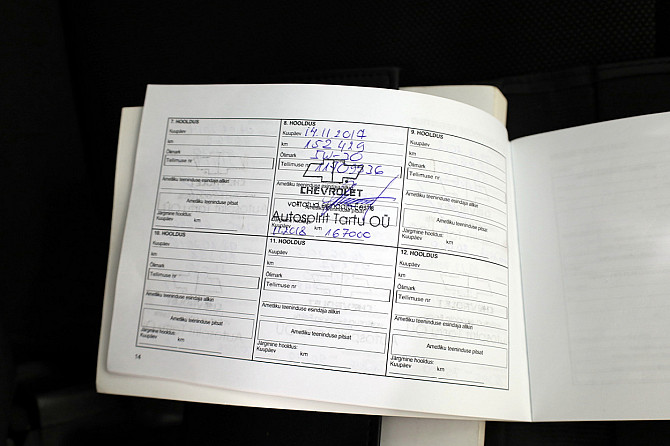 7. HOOLDUS
Kuupäev
km
Õlimark
Tellimuse nr
Ametliku teeninduse esindaja allkiri
Ametliku teeninduse pitsat
Järgmine hooldus:
Kuupäev km
8. HOOLDUS
Kuupäev 14.11.2017
km 152 429
Õlimark 5W-30
Tellimuse nr
Ametliku teeninduse esindaja allkiri
CHEVROLET
Autospirit Tartu OÜ
km 167000
9. HOOLDUS
Kuupäev
km
Õlimark
Tellimuse nr
Ametliku teeninduse esindaja allkiri
Ametliku teeninduse pitsat
Järgmine hooldus:
Kuupäev km
10. HOOLDUS
Kuupäev
km
Õlimark
Tellimuse nr
Ametliku teeninduse esindaja allkiri
Ametliku teeninduse pitsat
Järgmine hooldus:
Kuupäev km
11. HOOLDUS
Kuupäev
km
Õlimark
Tellimuse nr
Ametliku teeninduse esindaja allkiri
Ametliku teeninduse pitsat
Järgmine hooldus:
Kuupäev km
12. HOOLDUS
Kuupäev
km
Õlimark
Tellimuse nr
Ametliku teeninduse esindaja allkiri
Ametliku teeninduse pitsat
Järgmine hooldus:
Kuupäev km
14